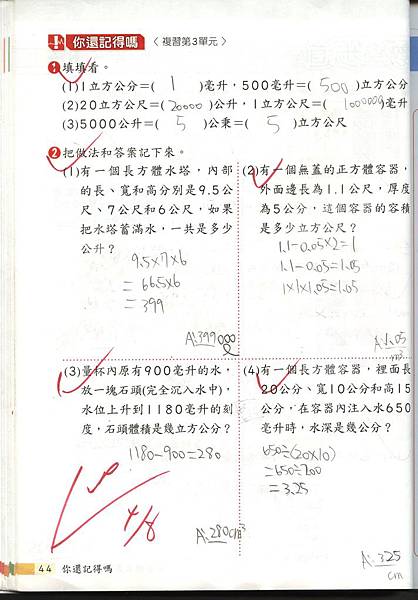 你還記得嗎 〈複習第3單元〉
1 填填看。
(1) 1立方公分=( 1 )毫升,500毫升=( 500 )立方公分
(2) 20立方公尺=( 20000 )公升,1立方公尺=( 1000000 )毫升
(3) 5000公升=( 5 )公秉=( 5 )立方公尺
2 把做法和答案記下來。
(1) 有一個長方體水塔,內部
的長、寬和高分別是9.5公
尺、7公尺和6公尺,如果
把水塔蓄滿水,一共是多少
公升?
9.5×7×6
= 66.5×6
= 399
A:399000ℓ
(2) 有一個無蓋的正方體容器,
外面邊長為1.1公尺,厚度
為5公分,這個容器的容積
是多少立方公尺?
1.1-0.05×2=1
1.1-0.05=1.05
1×1×1.05=1.05
A:1.05
m³
(3) 量杯內原有900毫升的水,
放一塊石頭(完全沉入水中),
水位上升到1180毫升的刻
度,石頭體積是幾立方公分?
1180-900=280
A:280cm³
(4) 有一個長方體容器,裡面長
20公分、寬10公分和高15
公分,在容器內注入水650
毫升時,水深是幾公分?
650÷(20×10)
=650÷200
=3.25
A:3.25
cm
4/8
44 你還記得嗎